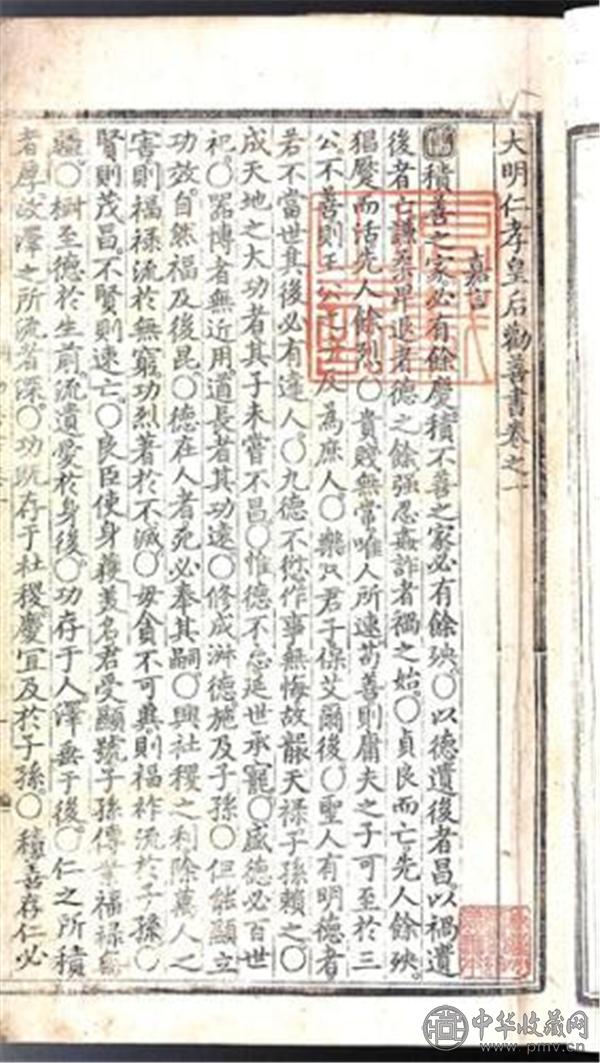 大明仁孝皇后勸善書卷之一
嘉言
積善之家必有餘慶積不善之家必有餘殃○以德遺後者昌以禍遺
後者亡謙柔卑退者德之餘強忍姦詐者禍之始○貞良而亡先人餘殃
猖蹷而活先人餘烈○貴賤無常唯人所速苟善則庸夫之子可至於三
公不善則王公之子反為庶人○樂只君子保艾爾後○聖人有明德者
若不當世其後必有達人○九德不愆作事無悔故襲天祿子孫賴之○
成天地之大功者其子未嘗不昌○惟德不忘延世承寵○盛德必百世
祀○器博者無近用道長者其功遠○修成淋德施及子孫○但能顯立
功效自然福及後昆○德在人者死必奉其嗣○興社稷之利除萬人之
害則福祿流於無窮功烈著於不滅○毋貪不可冀則福祚流於子孫○
賢則茂昌不賢則速亡○良臣使身獲美名君受顯號子孫傳業福祿無
疆○樹至德於生前流遺愛於身後○功存于人澤垂于後○仁之所積
者厚故澤之所流者深○功既存于社稷慶宜及於子孫○積善存仁必
中华收藏网
www.pmv.cn